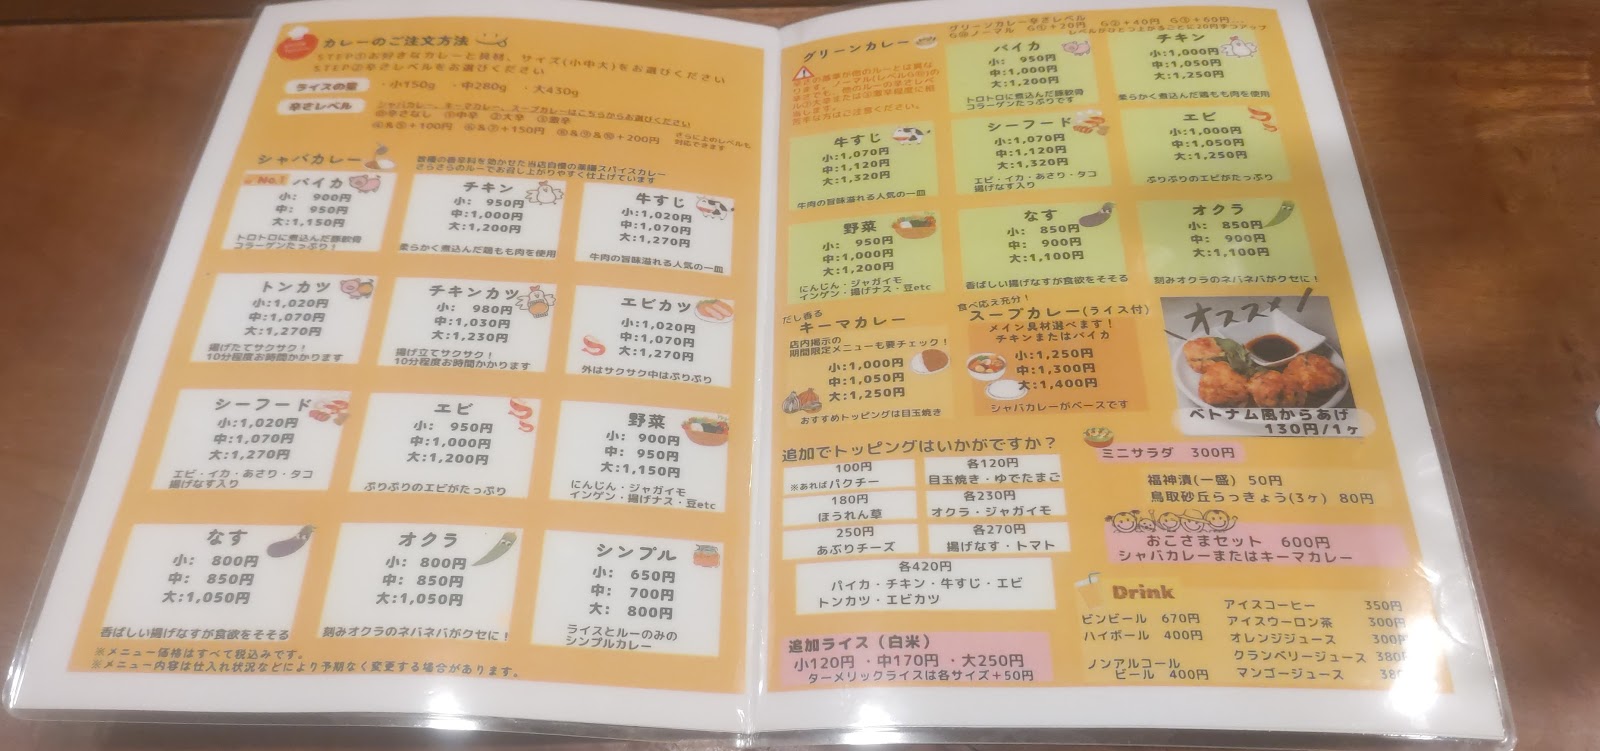 カレーのご注文方法
STEP①お好きなカレーと具材、サイズ(小中大)をお選びください
STEP②辛さレベルをお選びください
ライスの量
・小150g ・中280g ・大430g
辛さレベル
シャバカレー、キーマカレー、スープカレーはこちらからお選びください
⓪辛さなし ①中辛 ②大辛 ③激辛
④&⑤+100円 ⑥&⑦+150円 ⑧&⑨&⑩+200円
さらに上のレベルも
対応できます
シャバカレー
数種の香辛料を効かせた当店自慢の薬膳スパイスカレー
さらさらのルーでお召し上がりやすく仕上げています
No.1 パイカ
小: 900円
中: 950円
大:1,150円
トロトロに煮込んだ豚軟骨
コラーゲンたっぷり！
チキン
小: 950円
中:1,000円
大:1,200円
柔らかく煮込んだ鶏もも肉を使用
牛すじ
小:1,020円
中:1,070円
大:1,270円
牛肉の旨味溢れる人気の一皿
トンカツ
小:1,020円
中:1,070円
大:1,270円
揚げたてサクサク！
10分程度お時間かかります
チキンカツ
小: 980円
中:1,030円
大:1,230円
揚げ立てサクサク！
10分程度お時間かかります
エビカツ
小:1,020円
中:1,070円
大:1,270円
外はサクサク中はぷりぷり
シーフード
小:1,020円
中:1,070円
大:1,270円
エビ・イカ・あさり・タコ
揚げなす入り
エビ
小: 950円
中:1,000円
大:1,200円
ぷりぷりのエビがたっぷり
野菜
小: 900円
中: 950円
大:1,150円
にんじん・ジャガイモ
インゲン・揚げナス・豆etc
なす
小: 800円
中: 850円
大:1,050円
香ばしい揚げなすが食欲をそそる
オクラ
小: 800円
中: 850円
大:1,050円
刻みオクラのネバネバがクセに！
シンプル
小: 650円
中: 700円
大: 800円
ライスとルーのみの
シンプルカレー
※メニュー価格はすべて税込みです。
※メニュー内容は仕入れ状況などにより予期なく変更する場合があります。
グリーンカレー
グリーンカレー辛さレベル
G⓪ノーマル G①+20円 G②+40円 G③+60円...
レベルがひとつ上がるごとに20円ずつアップ
パイカ
小: 950円
中:1,000円
大:1,200円
トロトロに煮込んだ豚軟骨
コラーゲンたっぷりです
チキン
小:1,000円
中:1,050円
大:1,250円
柔らかく煮込んだ鶏もも肉を使用
牛すじ
小:1,070円
中:1,120円
大:1,320円
牛肉の旨味溢れる人気の一皿
シーフード
小:1,070円
中:1,120円
大:1,320円
エビ・イカ・あさり・タコ
揚げなす入り
エビ
小:1,000円
中:1,050円
大:1,250円
ぷりぷりのエビがたっぷり
野菜
小: 950円
中:1,000円
大:1,200円
にんじん・ジャガイモ
インゲン・揚げナス・豆etc
なす
小: 850円
中: 900円
大:1,100円
香ばしい揚げなすが食欲をそそる
オクラ
小: 850円
中: 900円
大:1,100円
刻みオクラのネバネバがクセに！
だし香る
キーマカレー
店内掲示の
期間限定メニューも要チェック！
小:1,000円
中:1,050円
大:1,250円
おすすめトッピングは目玉焼き
食べ応え充分！
スープカレー(ライス付)
メイン具材選べます！
チキンまたはパイカ
小:1,250円
中:1,300円
大:1,400円
シャバカレーがベースです
オススメ！
ベトナム風からあげ
130円/1ヶ
追加でトッピングはいかがですか？
100円
※あればパクチー
各120円
目玉焼き・ゆでたまご
180円
ほうれん草
各230円
オクラ・ジャガイモ
250円
あぶりチーズ
各270円
揚げなす・トマト
各420円
パイカ・チキン・牛すじ・エビ
トンカツ・エビカツ
追加ライス（白米）
小120円・中170円・大250円
ターメリックライスは各サイズ+50円
ミニサラダ 300円
福神漬(一盛) 50円
鳥取砂丘らっきょう(3ヶ) 80円
おこさまセット 600円
シャバカレーまたはキーマカレー
Drink
ビンビール 670円
ハイボール 400円
ノンアルコール
ビール 400円
アイスコーヒー 350円
アイスウーロン茶 300円
オレンジジュース 300円
クランベリージュース 380
マンゴージュース